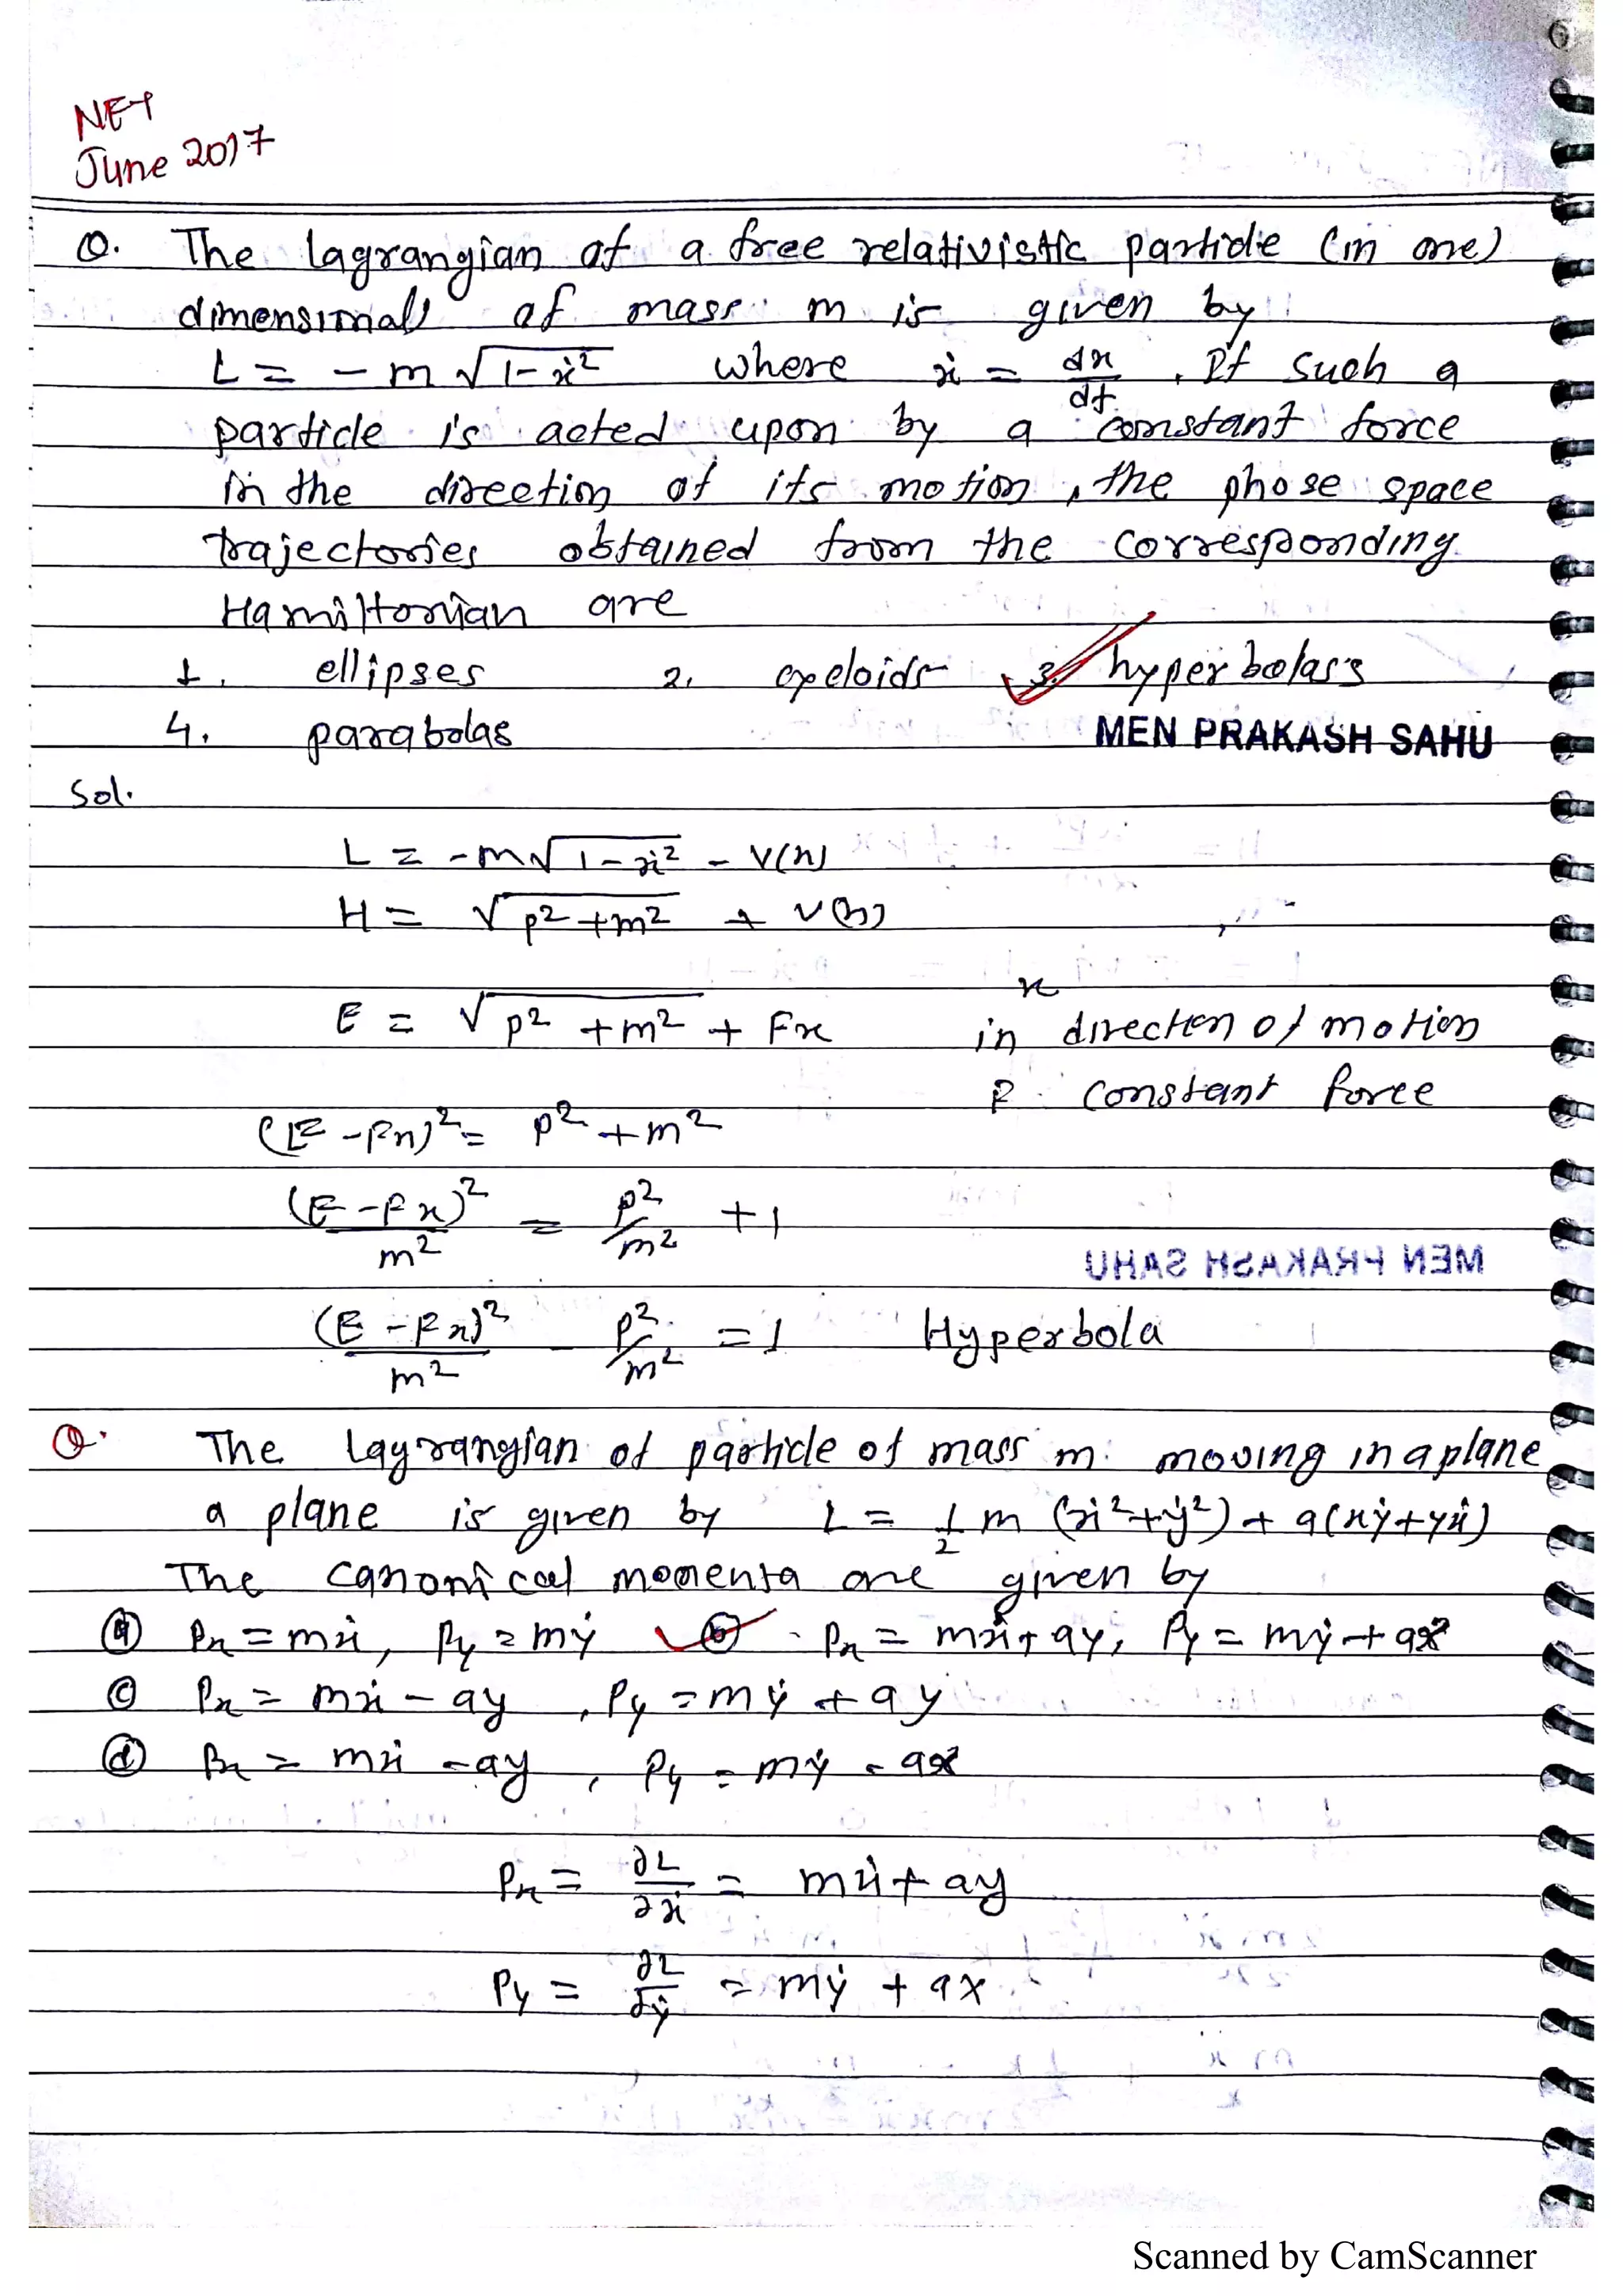 NET
June 2017
Q. The lagrangian of a free relativistic particle (in one)
dimensional of mass m is given by
L = - m √1-ẋ² where ẋ = dx/dt . If such a
particle is acted upon by a constant force
in the direction of its motion, the phose space
trajectories obtained from the corresponding
Hamiltonian are
1. ellipses 2. cycloids 3. hyperbolas
4. parabolas
MEN PRAKASH SAHU
Sol.
L = -m√1-ẋ² - V(x)
H = √p²+m² + V(x)
E = √p²+m² + Fx x in direction of motion
F constant force
(E-Fx)² = p²+m²
(E-Fx)²/m² = p²/m² + 1
(E-Fx)²/m² - p²/m² = 1 Hyperbola
Q. The Lagrangian of particle of mass m moving in a plane
a plane is given by L = 1/2 m (ẋ²+ẏ²) + a(xẏ+yẋ)
The canonical momenta are given by
(a) Px = mẋ, Py = mẏ (b) Px = mẋ+ay, Py = mẏ+ax
(c) Px = mẋ - ay, Py = mẏ + ay
(d) Px = mẋ - ay, Py = mẏ - ax
Px = ∂L/∂ẋ = mẋ + ay
Py = ∂L/∂ẏ = mẏ + ax
Scanned by CamScanner